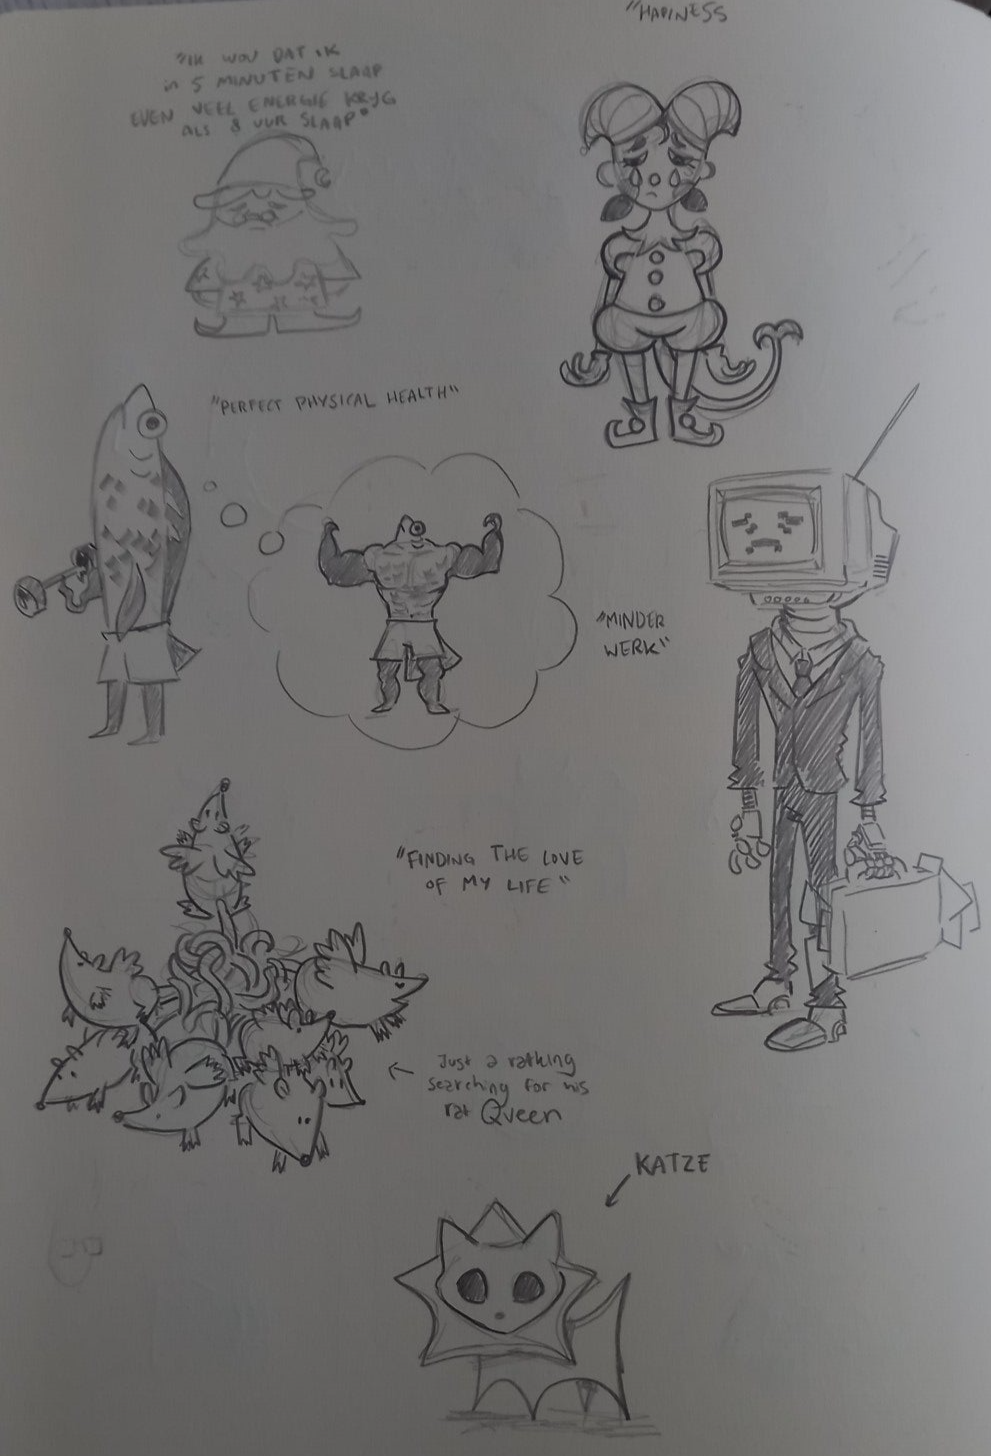 "HAPINESS
"IK WOU DAT IK
in 5 MINUTEN SLAAP
EVEN VEEL ENERGIE KRYG
ALS 8 UUR SLAAP"
"PERFECT PHYSICAL HEALTH"
"MINDER
WERK"
"FINDING THE LOVE
OF MY LIFE"
Just a ratking
searching for his
rat Queen
KATZE